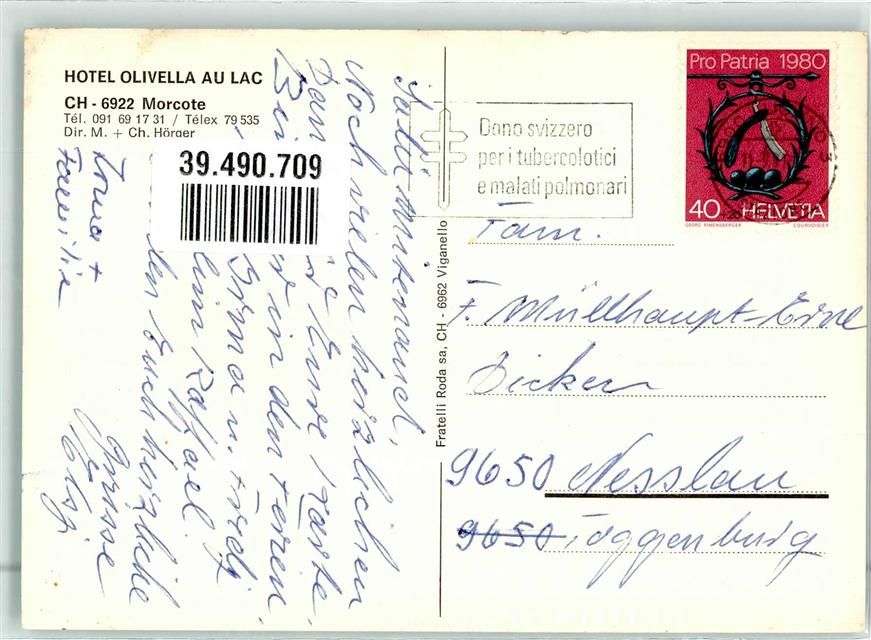 HOTEL OLIVELLA AU LAC
CH - 6922 Morcote
Tél. 091 69 17 31 / Télex 79 535
Dir. M. + Ch. Hörger
39.490.709
Salli Mitenand,
Noch vielen herzlichen
Dank Eure Karte.
Bei in den Ferien,
Irma u. Fredy
beim Raffael.
Euch herzliche
Grüsse
Elsy
+
Familie
Fratelli Roda sa, CH - 6962 Viganello
Dono svizzero
per i tubercolotici
e malati polmonari
Pro Patria 1980
40 HELVETIA
GEORG RIMENSBERGER COURVOISIER
Fam.
F. Müllhaupt-Erne
Dicken
9650 Nesslau
9650 Toggenburg